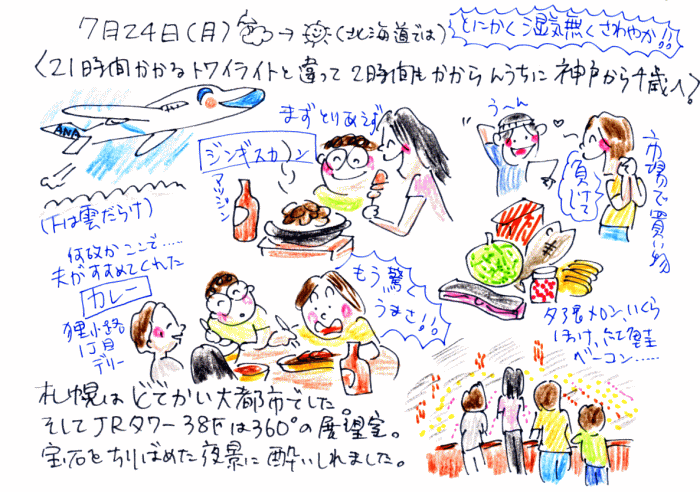 7月24日(月) → (北海道では)
とにかく湿気無くさわやか!!
<21時間かかるトワイライトと違って 2時間もかからんうちに 神戸から千歳へ>
ANA
まずとりあえず
ジンギスカン
アサヒジャン
うーん
負けて
市場で買い物
(下は雲だらけ)
何故かここで……
夫がすすめてくれた
カレー
狸小路
1丁目
デリー
もう驚く
うまさ!!
夕張メロン、いくら
ほっけ、
ベーコン……
札幌はどでかい大都市でした。
そしてJRタワー38Fは360°の展望室。
宝石をちりばめた夜景に酔いしれました。